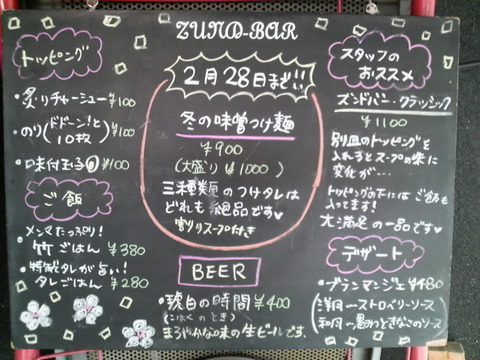 ZUND-BAR
トッピング
・炙りチャーシュー ¥100
・のり(ドドーン!と10枚) ¥100
・味付玉子 ¥100
ご飯
・メンマたっぷり!
竹ごはん ¥380
・特製タレが旨い!
タレごはん ¥280
2月28日まで!!
冬の味噌つけ麺
¥900
(大盛り ¥1000)
三種類のつけタレは
どれも絶品です♥
割りスープ付き
BEER
・琥白の時間 ¥400
(こはくのとき)
まろやかな味の生ビールです。
スタッフの
おススメ
ズンドバー・クラッシック
¥1100
別皿のトッピングを
入れるとスープの味に
変化が…
トッピングの下にはご飯も
入ってます!
大満足の一品です♥
デザート
・ブランマンジェ ¥480
(洋月―ストロベリーソース)
(和月―黒みつときなこのソース)